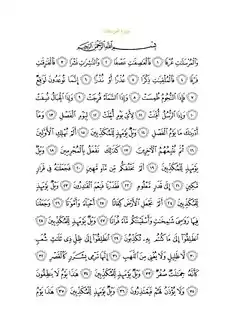 سورة المرسلات
بِسْمِ اللَّهِ الرَّحْمَٰنِ الرَّحِيمِ
وَالْمُرْسَلَاتِ عُرْفًا ١ فَالْعَاصِفَاتِ عَصْفًا ٢ وَالنَّاشِرَاتِ نَشْرًا ٣ فَالْفَارِقَاتِ
فَرْقًا ٤ فَالْمُلْقِيَاتِ ذِكْرًا ٥ عُذْرًا أَوْ نُذْرًا ٦ إِنَّمَا تُوعَدُونَ لَوَاقِعٌ
٧ فَإِذَا النُّجُومُ طُمِسَتْ ٨ وَإِذَا السَّمَاءُ فُرِجَتْ ٩ وَإِذَا الْجِبَالُ نُسِفَتْ
١٠ وَإِذَا الرُّسُلُ أُقِّتَتْ ١١ لِأَيِّ يَوْمٍ أُجِّلَتْ ١٢ لِيَوْمِ الْفَصْلِ ١٣ وَمَا
أَدْرَاكَ مَا يَوْمُ الْفَصْلِ ١٤ وَيْلٌ يَوْمَئِذٍ لِلْمُكَذِّبِينَ ١٥ أَلَمْ نُهْلِكِ الْأَوَّلِينَ
١٦ ثُمَّ نُتْبِعُهُمُ الْآخِرِينَ ١٧ كَذَٰلِكَ نَفْعَلُ بِالْمُجْرِمِينَ ١٨ وَيْلٌ
يَوْمَئِذٍ لِلْمُكَذِّبِينَ ١٩ أَلَمْ نَخْلُقْكُمْ مِنْ مَاءٍ مَهِينٍ ٢٠ فَجَعَلْنَاهُ فِي قَرَارٍ
مَكِينٍ ٢١ إِلَىٰ قَدَرٍ مَعْلُومٍ ٢٢ فَقَدَرْنَا فَنِعْمَ الْقَادِرُونَ ٢٣ وَيْلٌ يَوْمَئِذٍ
لِلْمُكَذِّبِينَ ٢٤ أَلَمْ نَجْعَلِ الْأَرْضَ كِفَاتًا ٢٥ أَحْيَاءً وَأَمْوَاتًا ٢٦ وَجَعَلْنَا
فِيهَا رَوَاسِيَ شَامِخَاتٍ وَأَسْقَيْنَاكُمْ مَاءً فُرَاتًا ٢٧ وَيْلٌ يَوْمَئِذٍ لِلْمُكَذِّبِينَ
٢٨ انْطَلِقُوا إِلَىٰ مَا كُنْتُمْ بِهِ تُكَذِّبُونَ ٢٩ انْطَلِقُوا إِلَىٰ ظِلٍّ ذِي ثَلَاثِ شُعَبٍ
٣٠ لَا ظَلِيلٍ وَلَا يُغْنِي مِنَ اللَّهَبِ ٣١ إِنَّهَا تَرْمِي بِشَرَرٍ كَالْقَصْرِ ٣٢
كَأَنَّهُ جِمَالَتٌ صُفْرٌ ٣٣ وَيْلٌ يَوْمَئِذٍ لِلْمُكَذِّبِينَ ٣٤ هَٰذَا يَوْمُ لَا يَنْطِقُونَ
٣٥ وَلَا يُؤْذَنُ لَهُمْ فَيَعْتَذِرُونَ ٣٦ وَيْلٌ يَوْمَئِذٍ لِلْمُكَذِّبِينَ ٣٧ هَٰذَا يَوْمُ